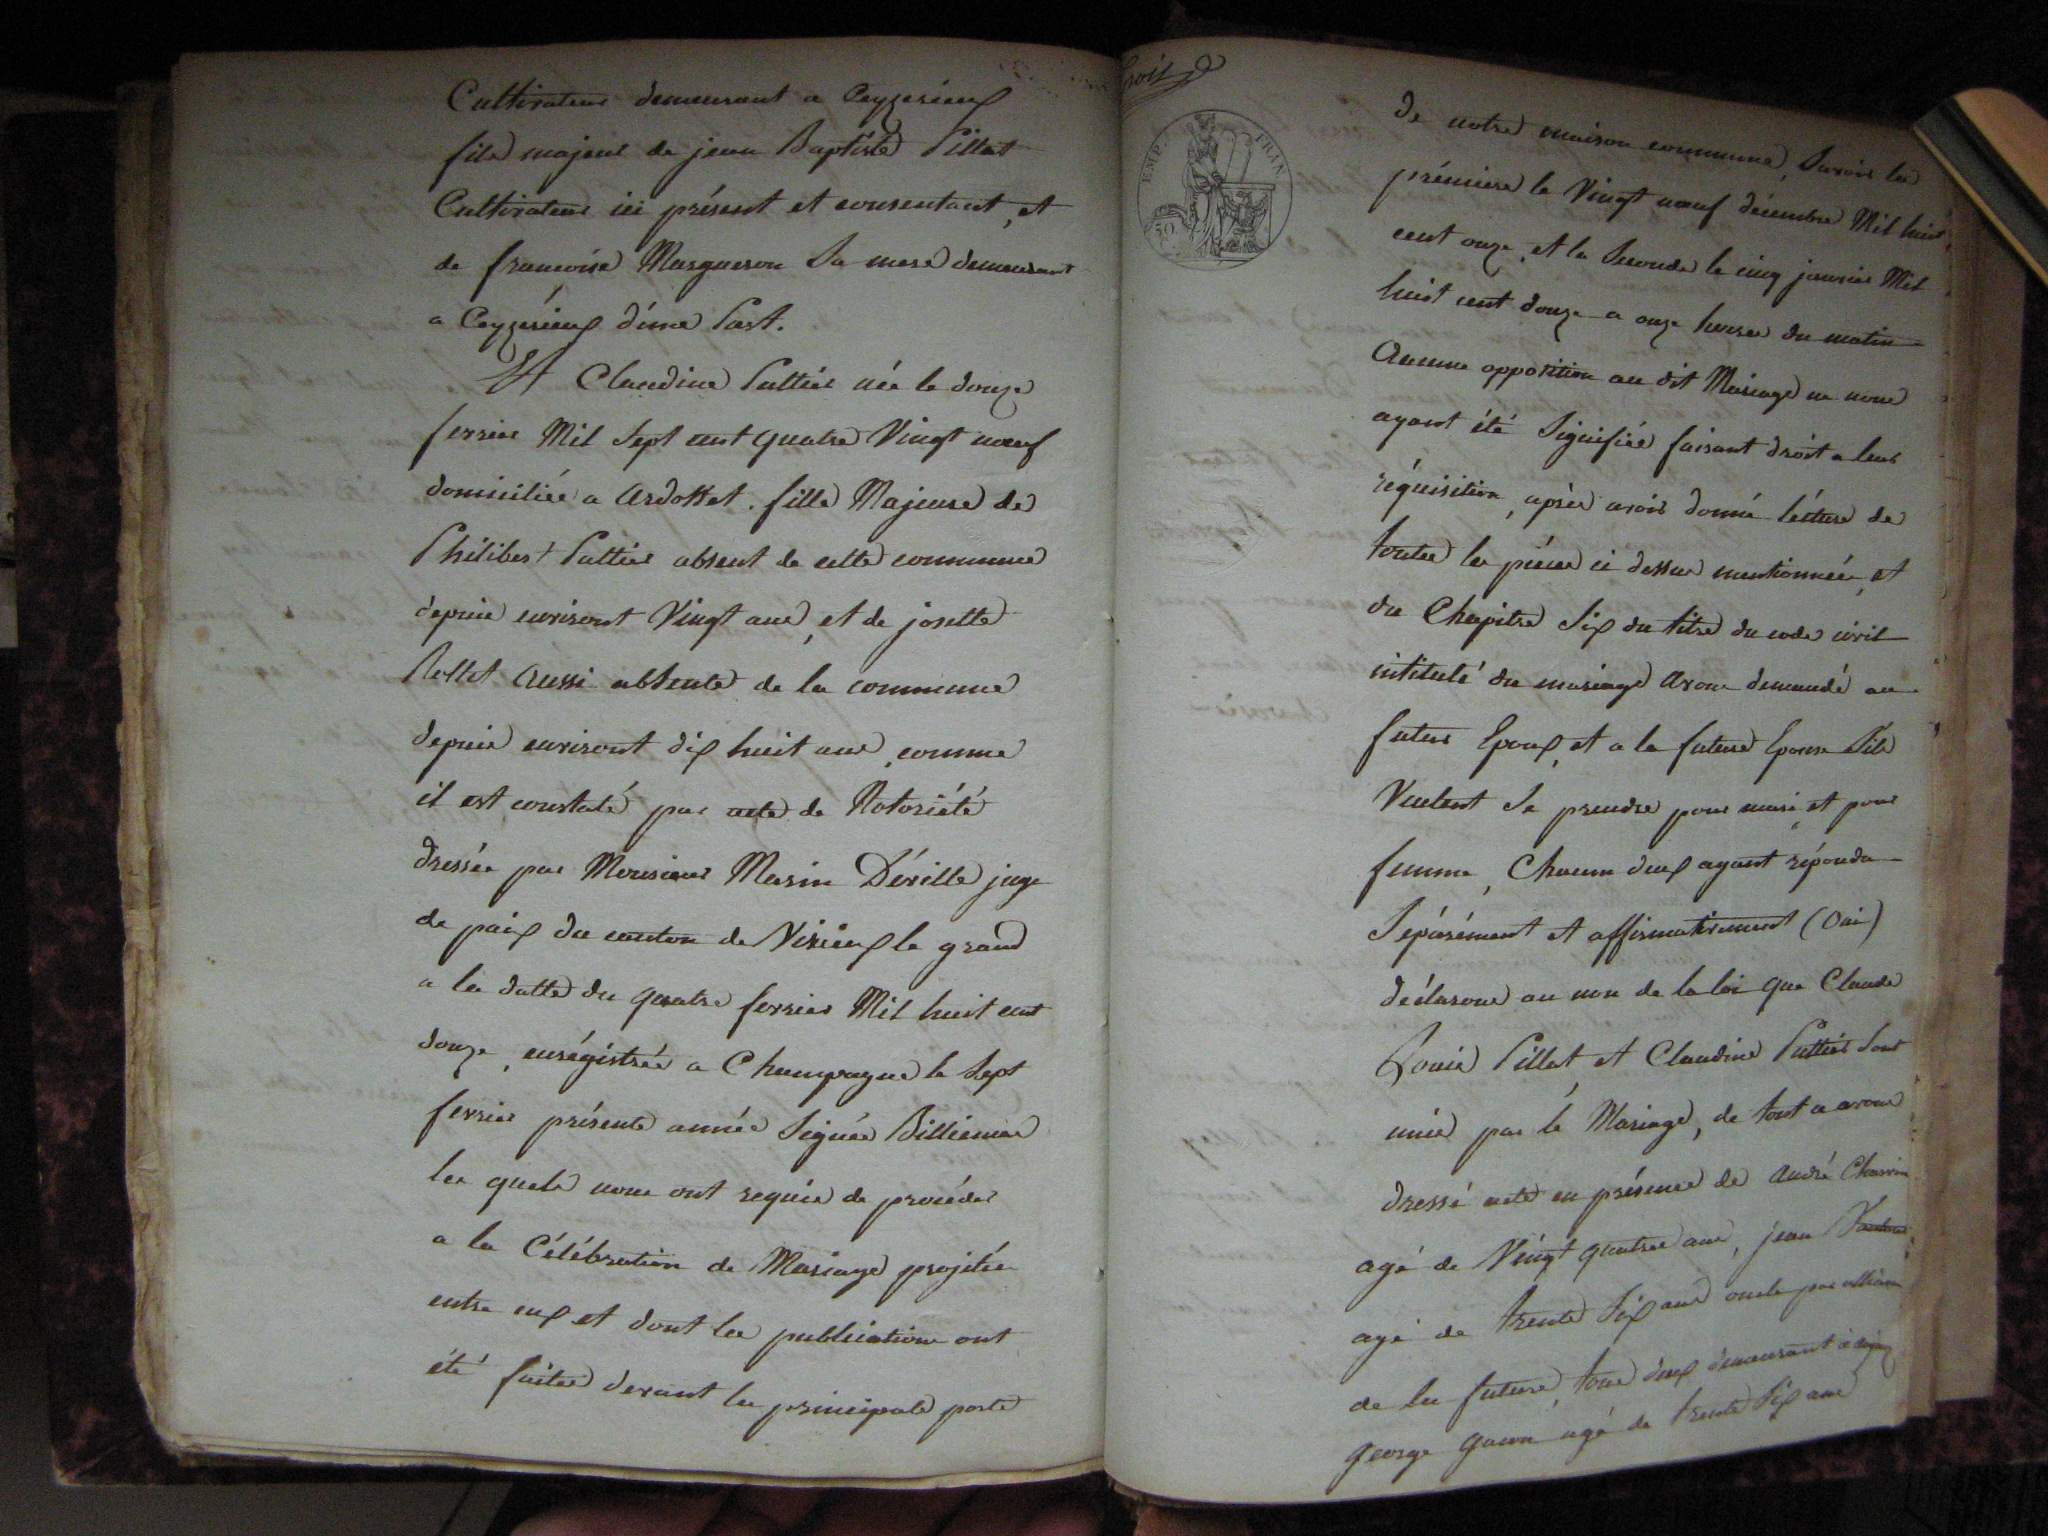 Cultivateur demeurant a Ceyzerieux
fils majeur de jean Baptiste Pillat
Cultivateur ici présent et consentant, et
de francoise Masgueron Sa mere demeurant
a Ceyzérieux d'une Part.
Et Claudine Puttier née le douze
fevrier Mil Sept cent quatre Vingt nœuf
domiciliée a Ardosset. fille Majeure de
Philibert Puttier absent de cette commune
depuis environt Vingt ans, et de josette
Rollet Aussi absente de la commune
depuis environt dix huit ans, comme
il est constaté par acte de Notoriété
dressée par Monsieur Marin Déville juge
de paix du canton de Virieux le grand
a la datte du quatre fevrier Mil huit cent
douze, enrégistrée a Champagne le Sept
fevrier présente année Signée Billiemas
les quels nous ont requis de procéder
a la Célébration de Mariage projetée
entre eux et dont les publications ont
été faites devant la principale porte
trois
EMP. FRAN
50
de notre maison commune, Savoir la
prémiere le Vingt nœuf décembre Mil huit
cent onze, et la Seconde le cinq janvier Mil
huit cent douze a onze heures du matin
Aucune opposition au dit Mariage ne nous
ayant été Signifiée faisant droit a leur
réquisition, après avoir donné lécture de
toutes les piéces ci dessus mentionnées, et
du Chapitre Six du titre du code civil
intitulé du mariage Avons demandé au
futur Epoux, et a la future Epouse S'ils
Veulent Se prendre pour mari, et pour
femme, Chacun deux ayant répondu
Séparément et affirmativement (Oui)
déclarons au nom de la loi que Claude
Louis Pillat et Claudine Puttier Sont
unis par le Mariage, de tout a avons
dressé acte en présence de André Charvin
agé de Vingt quatre ans, jean
agé de trente Six ans oncle par alliance
de la future, tous deux demeurant a
george gason agé de trente Six ans